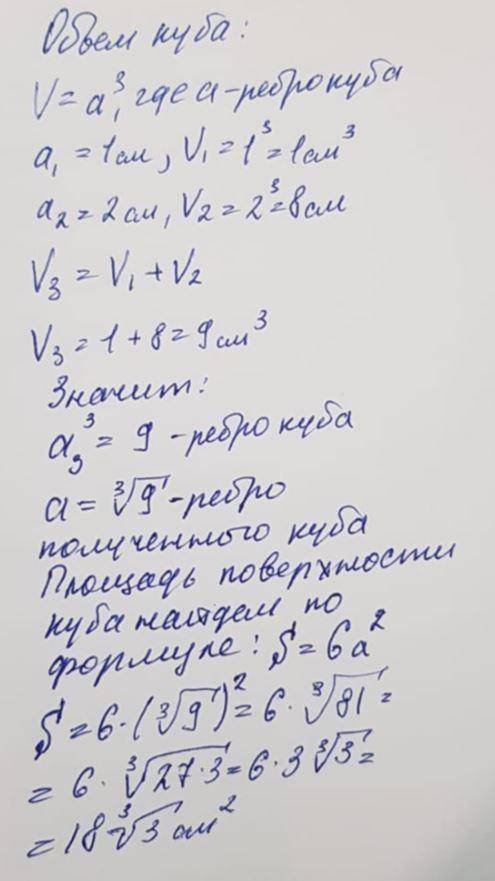 Объем куба:
V = a³, где a - ребро куба
a₁ = 1 см, V₁ = 1³ = 1 см³
a₂ = 2 см, V₂ = 2³ = 8 см
V₃ = V₁ + V₂
V₃ = 1 + 8 = 9 см³
Значит:
a₃³ = 9 - ребро куба
a = ∛9 - ребро
полученного куба
Площадь поверхности
куба найдем по
формуле: S = 6a²
S = 6 · (∛9)² = 6 · ∛81 =
= 6 · ∛27·3 = 6 · 3 ∛3 =
= 18 ∛3 см²